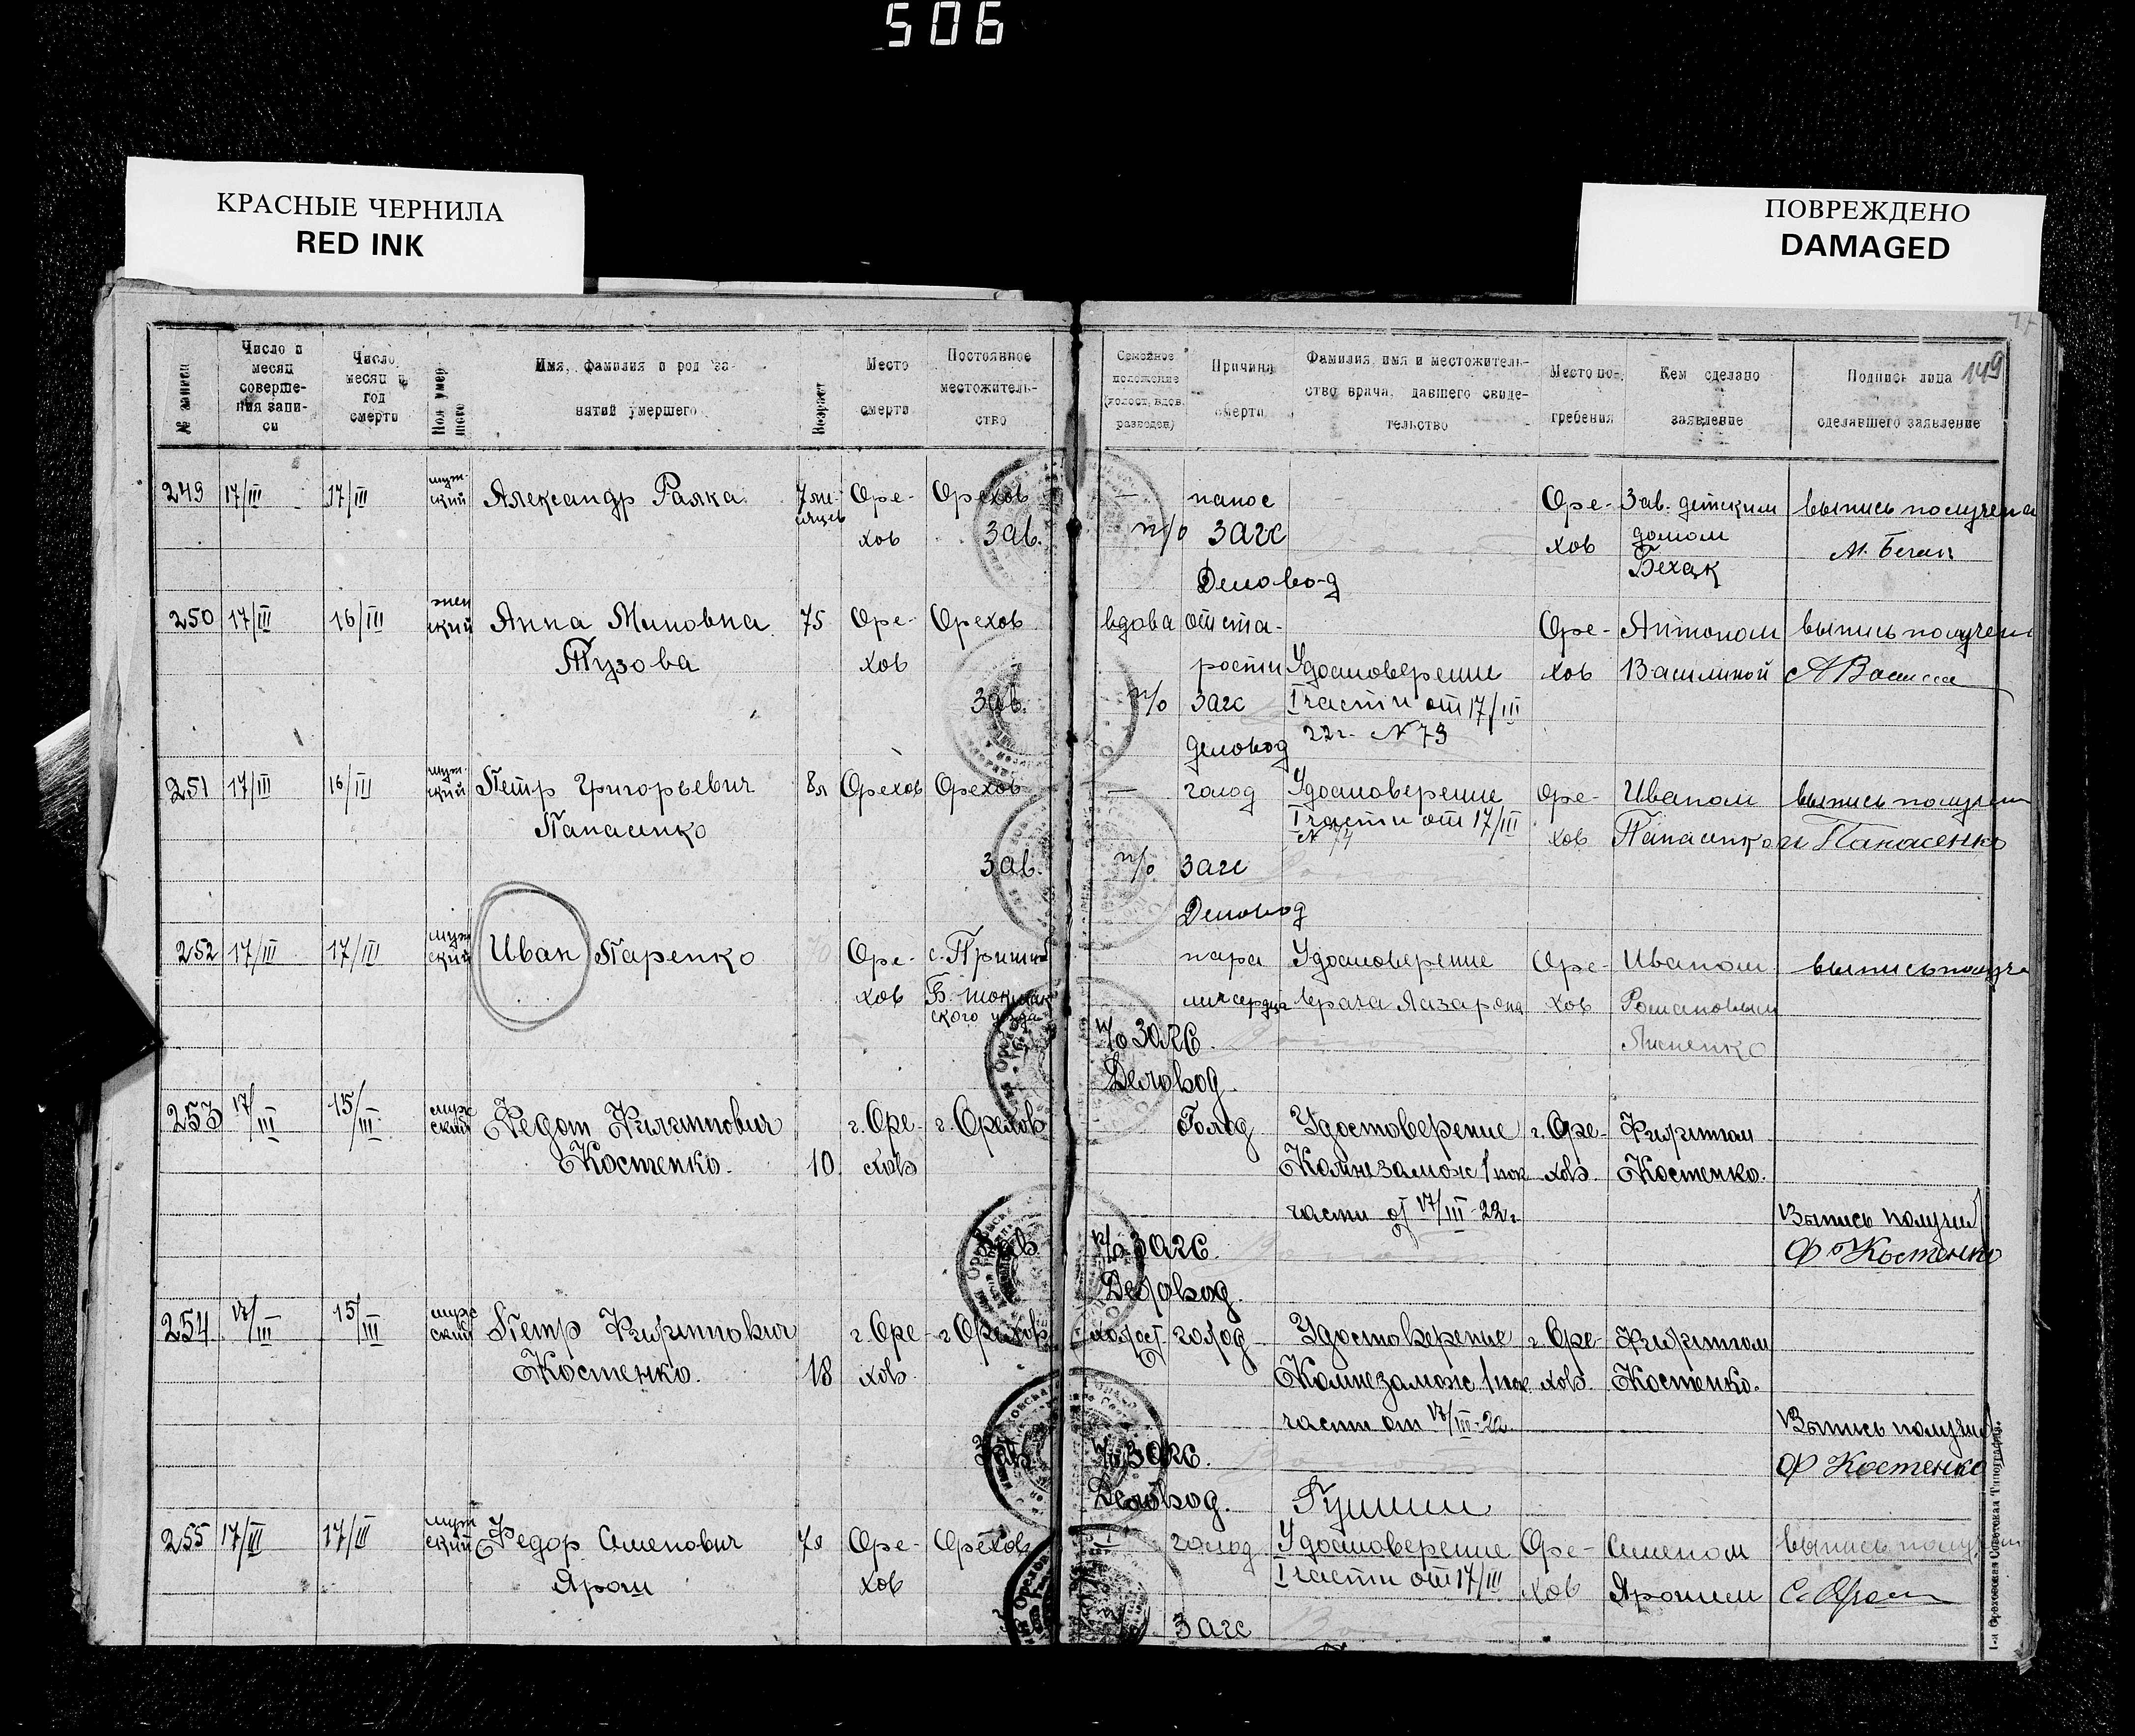 506
КРАСНЫЕ ЧЕРНИЛА
RED INK
ПОВРЕЖДЕНО
DAMAGED
149
№ записи
Число и месяц соверше-ния запи-си
Число месяц и год смерти
Пол умер шего
Имя, фамилия и род за-нятий умершего
Возраст
Место смерти
Постоянное местожитель-ство
Семейное положение (холост, вдов. разведен)
Причина смерти
Фамилия, имя и местожитель-ство врача, давшего свиде-тельство
Место по-гребения
Кем сделано заявление
Подпись лица сделавшего заявление
249 17/III 17/III муж-ский Александр Раяка 7 ме-сяцев Оре-хов Орехов — понос Оре-хов Зав. детским домом Бехак выпись получена
Зав. п/о Загс
Деловод
250 17/III 16/III жен ский Анна Миновна Тузова 75 Оре-хов Орехов вдова от ста-рости Удостоверение I части от 17/III 22 г. N 73 Оре-хов Антоном Василиной выпись получена
Зав. п/о Загс
Деловод
251 17/III 16/III муж-ский Петр Григорьевич Панасенко 8 л Орехов Орехов — голод Удостоверение I части от 17/III N 74 Оре-хов Иваном Панасенко выпись получена
и Панасенко
Зав. п/о Загс
Деловод
252 17/III 17/III муж ский Иван Паренко 70 Оре-хов с. Б. Токмак ского уезда пара лич сердца Удостоверение врача Лазарона Оре-хов Иваном Романовым выпись получе
п/о Загс.
Деловод.
253 17/III 15/III муж ский Федот Филиппович Костенко. 10. г. Оре-хов г. Орехов Голод Удостоверение Комнезамож 1 части от 17/III-22 г. г. Оре-хов. Филиппом Костенко.
Выпись получил
Ф Костенко
Зав п/о Загс.
Деловод.
254 17/III 15/III муж ский Петр Филиппович Костенко. 18 г. Оре-хов. г Орехов холост голод Удостоверение Комнезамож 1 части от 17/III-22. г. Оре-хов. Филиппом Костенко.
Выпись получил
Ф Костенко
Зав п/о Загс.
Деловод.
255 17/III 17/III муж ский Федор Семенович Ярош Оре-хов Орехов голод Удостоверение I части от 17/III Оре-хов Семеном Ярошем выпись
Загс
1-я Ореховская Советская Типография.